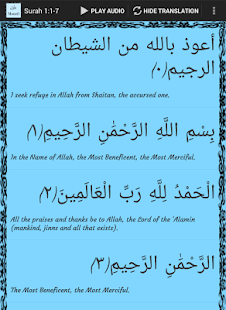 Surah 1:1-7
PLAY AUDIO
HIDE TRANSLATION
أعوذ بالله من الشيطان
الرجيم(٠)
I seek refuge in Allah from Shaitan, the accursed one.
بِسْمِ اللَّهِ الرَّحْمَٰنِ الرَّحِيمِ(١)
In the Name of Allah, the Most Beneficent, the Most Merciful.
الْحَمْدُ لِلَّهِ رَبِّ الْعَالَمِينَ(٢)
All the praises and thanks be to Allah, the Lord of the 'Alamin
(mankind, jinns and all that exists).
الرَّحْمَٰنِ الرَّحِيمِ(٣)
The Most Beneficent, the Most Merciful.